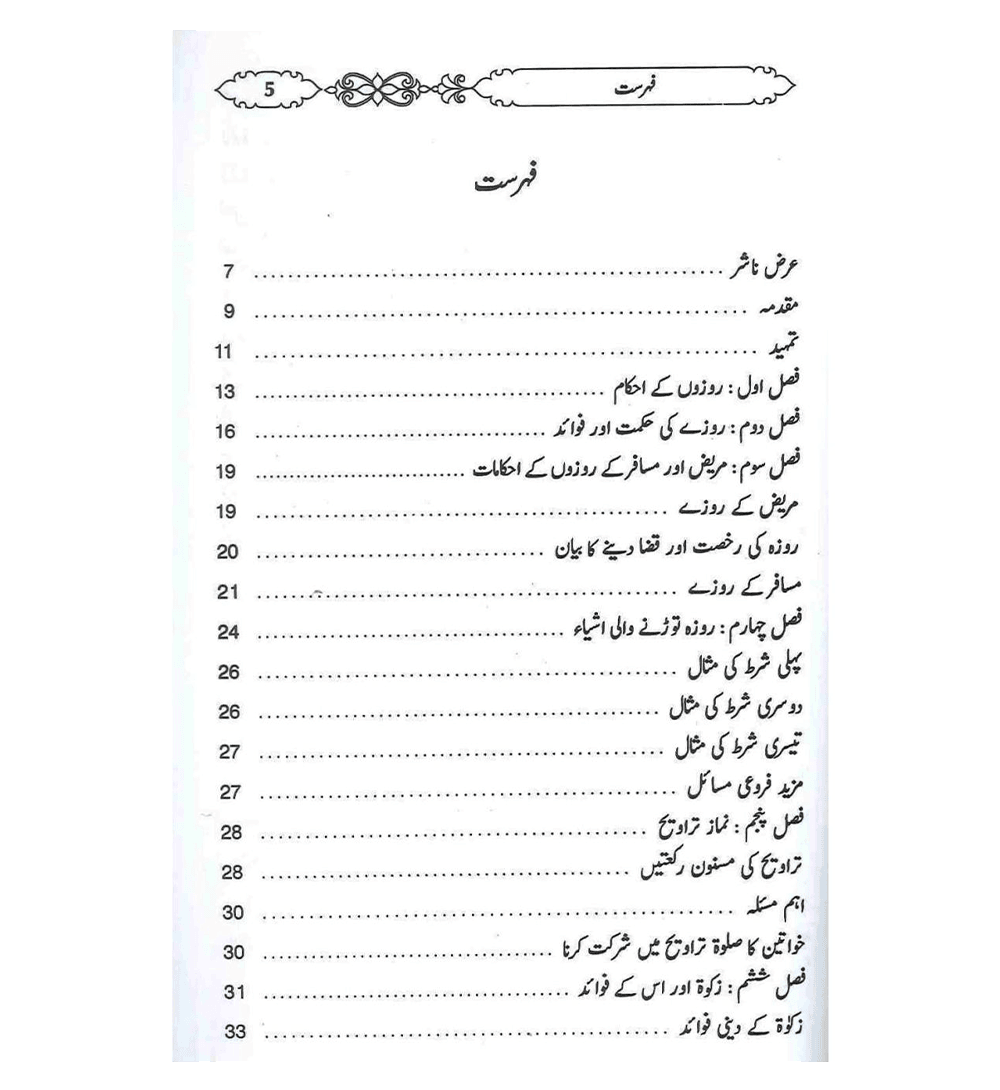 فہرست 5
فہرست
عرض ناشر ........ 7
مقدمہ ........ 9
تمہید ........ 11
فصل اول : روزوں کے احکام ........ 13
فصل دوم : روزے کی حکمت اور فوائد ........ 16
فصل سوم : مریض اور مسافر کے روزوں کے احکامات ........ 19
مریض کے روزے ........ 19
روزہ کی رخصت اور قضا دینے کا بیان ........ 20
مسافر کے روزے ........ 21
فصل چہارم : روزہ توڑنے والی اشیاء ........ 24
پہلی شرط کی مثال ........ 26
دوسری شرط کی مثال ........ 26
تیسری شرط کی مثال ........ 27
مزید فروعی مسائل ........ 27
فصل پنجم : نماز تراویح ........ 28
تراویح کی مسنون رکعتیں ........ 28
اہم مسئلہ ........ 30
خواتین کا صلوۃ تراویح میں شرکت کرنا ........ 30
فصل ششم : زکوۃ اور اس کے فوائد ........ 31
زکوٰۃ کے دینی فوائد ........ 33